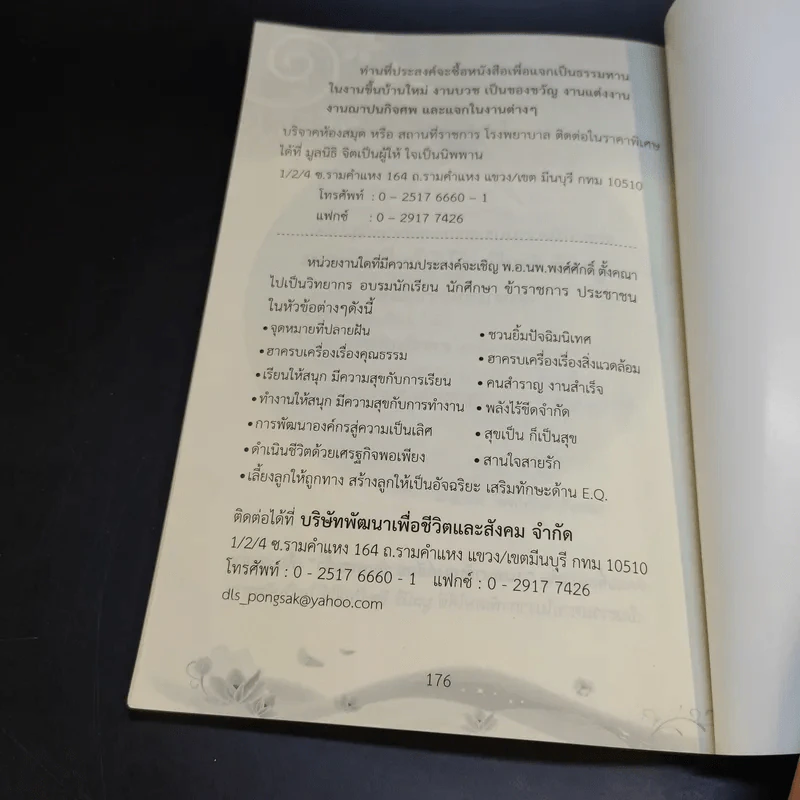 ท่านที่ประสงค์จะซื้อหนังสือเพื่อแจกเป็นธรรมทาน
ในงานขึ้นบ้านใหม่ งานบวช เป็นของขวัญ งานแต่งงาน
งานฌาปนกิจศพ และแจกในงานต่างๆ
บริจาคห้องสมุด หรือ สถานที่ราชการ โรงพยาบาล ติดต่อในราคาพิเศษ
ได้ที่ มูลนิธิ จิตเป็นผู้ให้ ใจเป็นนิพพาน
1/2/4 ซ.รามคำแหง 164 ถ.รามคำแหง แขวง/เขต มีนบุรี กทม 10510
โทรศัพท์ : 0 – 2517 6660 – 1
แฟกซ์ : 0 – 2917 7426
หน่วยงานใดที่มีความประสงค์จะเชิญ พ.อ.นพ.พงศ์ศักดิ์ ตั้งคณา
ไปเป็นวิทยากร อบรมนักเรียน นักศึกษา ข้าราชการ ประชาชน
ในหัวข้อต่างๆดังนี้
• จุดหมายที่ปลายฝัน
• ชวนยิ้มปัจฉิมนิเทศ
• ฮาครบเครื่องเรื่องคุณธรรม
• ฮาครบเครื่องเรื่องสิ่งแวดล้อม
• เรียนให้สนุก มีความสุขกับการเรียน
• คนสำราญ งานสำเร็จ
• ทำงานให้สนุก มีความสุขกับการทำงาน
• พลังไร้ขีดจำกัด
• การพัฒนาองค์กรสู่ความเป็นเลิศ
• สุขเป็น ก็เป็นสุข
• ดำเนินชีวิตด้วยเศรษฐกิจพอเพียง
• สานใจสายรัก
• เลี้ยงลูกให้ถูกทาง สร้างลูกให้เป็นอัจฉริยะ เสริมทักษะด้าน E.Q.
ติดต่อได้ที่ บริษัทพัฒนาเพื่อชีวิตและสังคม จำกัด
1/2/4 ซ.รามคำแหง 164 ถ.รามคำแหง แขวง/เขตมีนบุรี กทม 10510
โทรศัพท์ : 0 - 2517 6660 - 1 แฟกซ์ : 0 - 2917 7426
dls_pongsak@yahoo.com
176